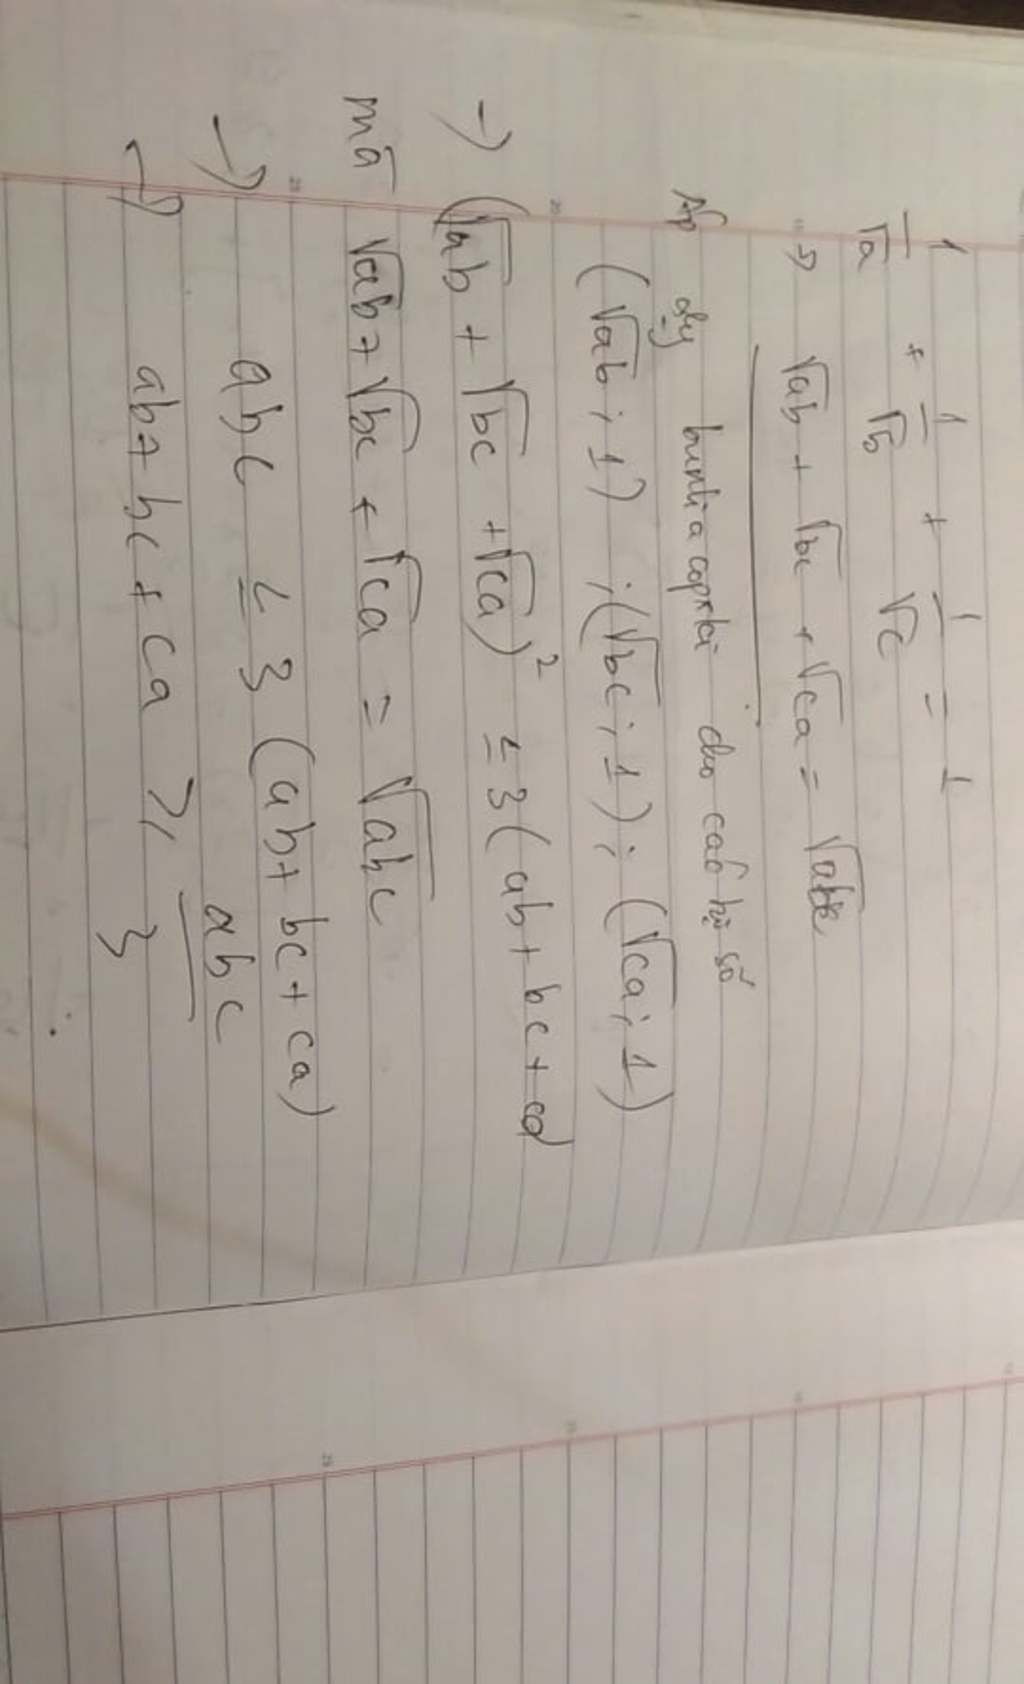 1/√a + 1/√b + 1/√c = 1
=> √ab + √bc + √ca = √abc
Áp dụng bunhiacopxki cho các hệ số
(√ab ; 1) ; (√bc ; 1) ; (√ca ; 1)
→ (√ab + √bc + √ca)² ≤ 3(ab + bc + ca
mà √ab + √bc + √ca = √abc
→ abc ≤ 3 (ab + bc + ca)
→ ab + bc + ca ≥ abc/3